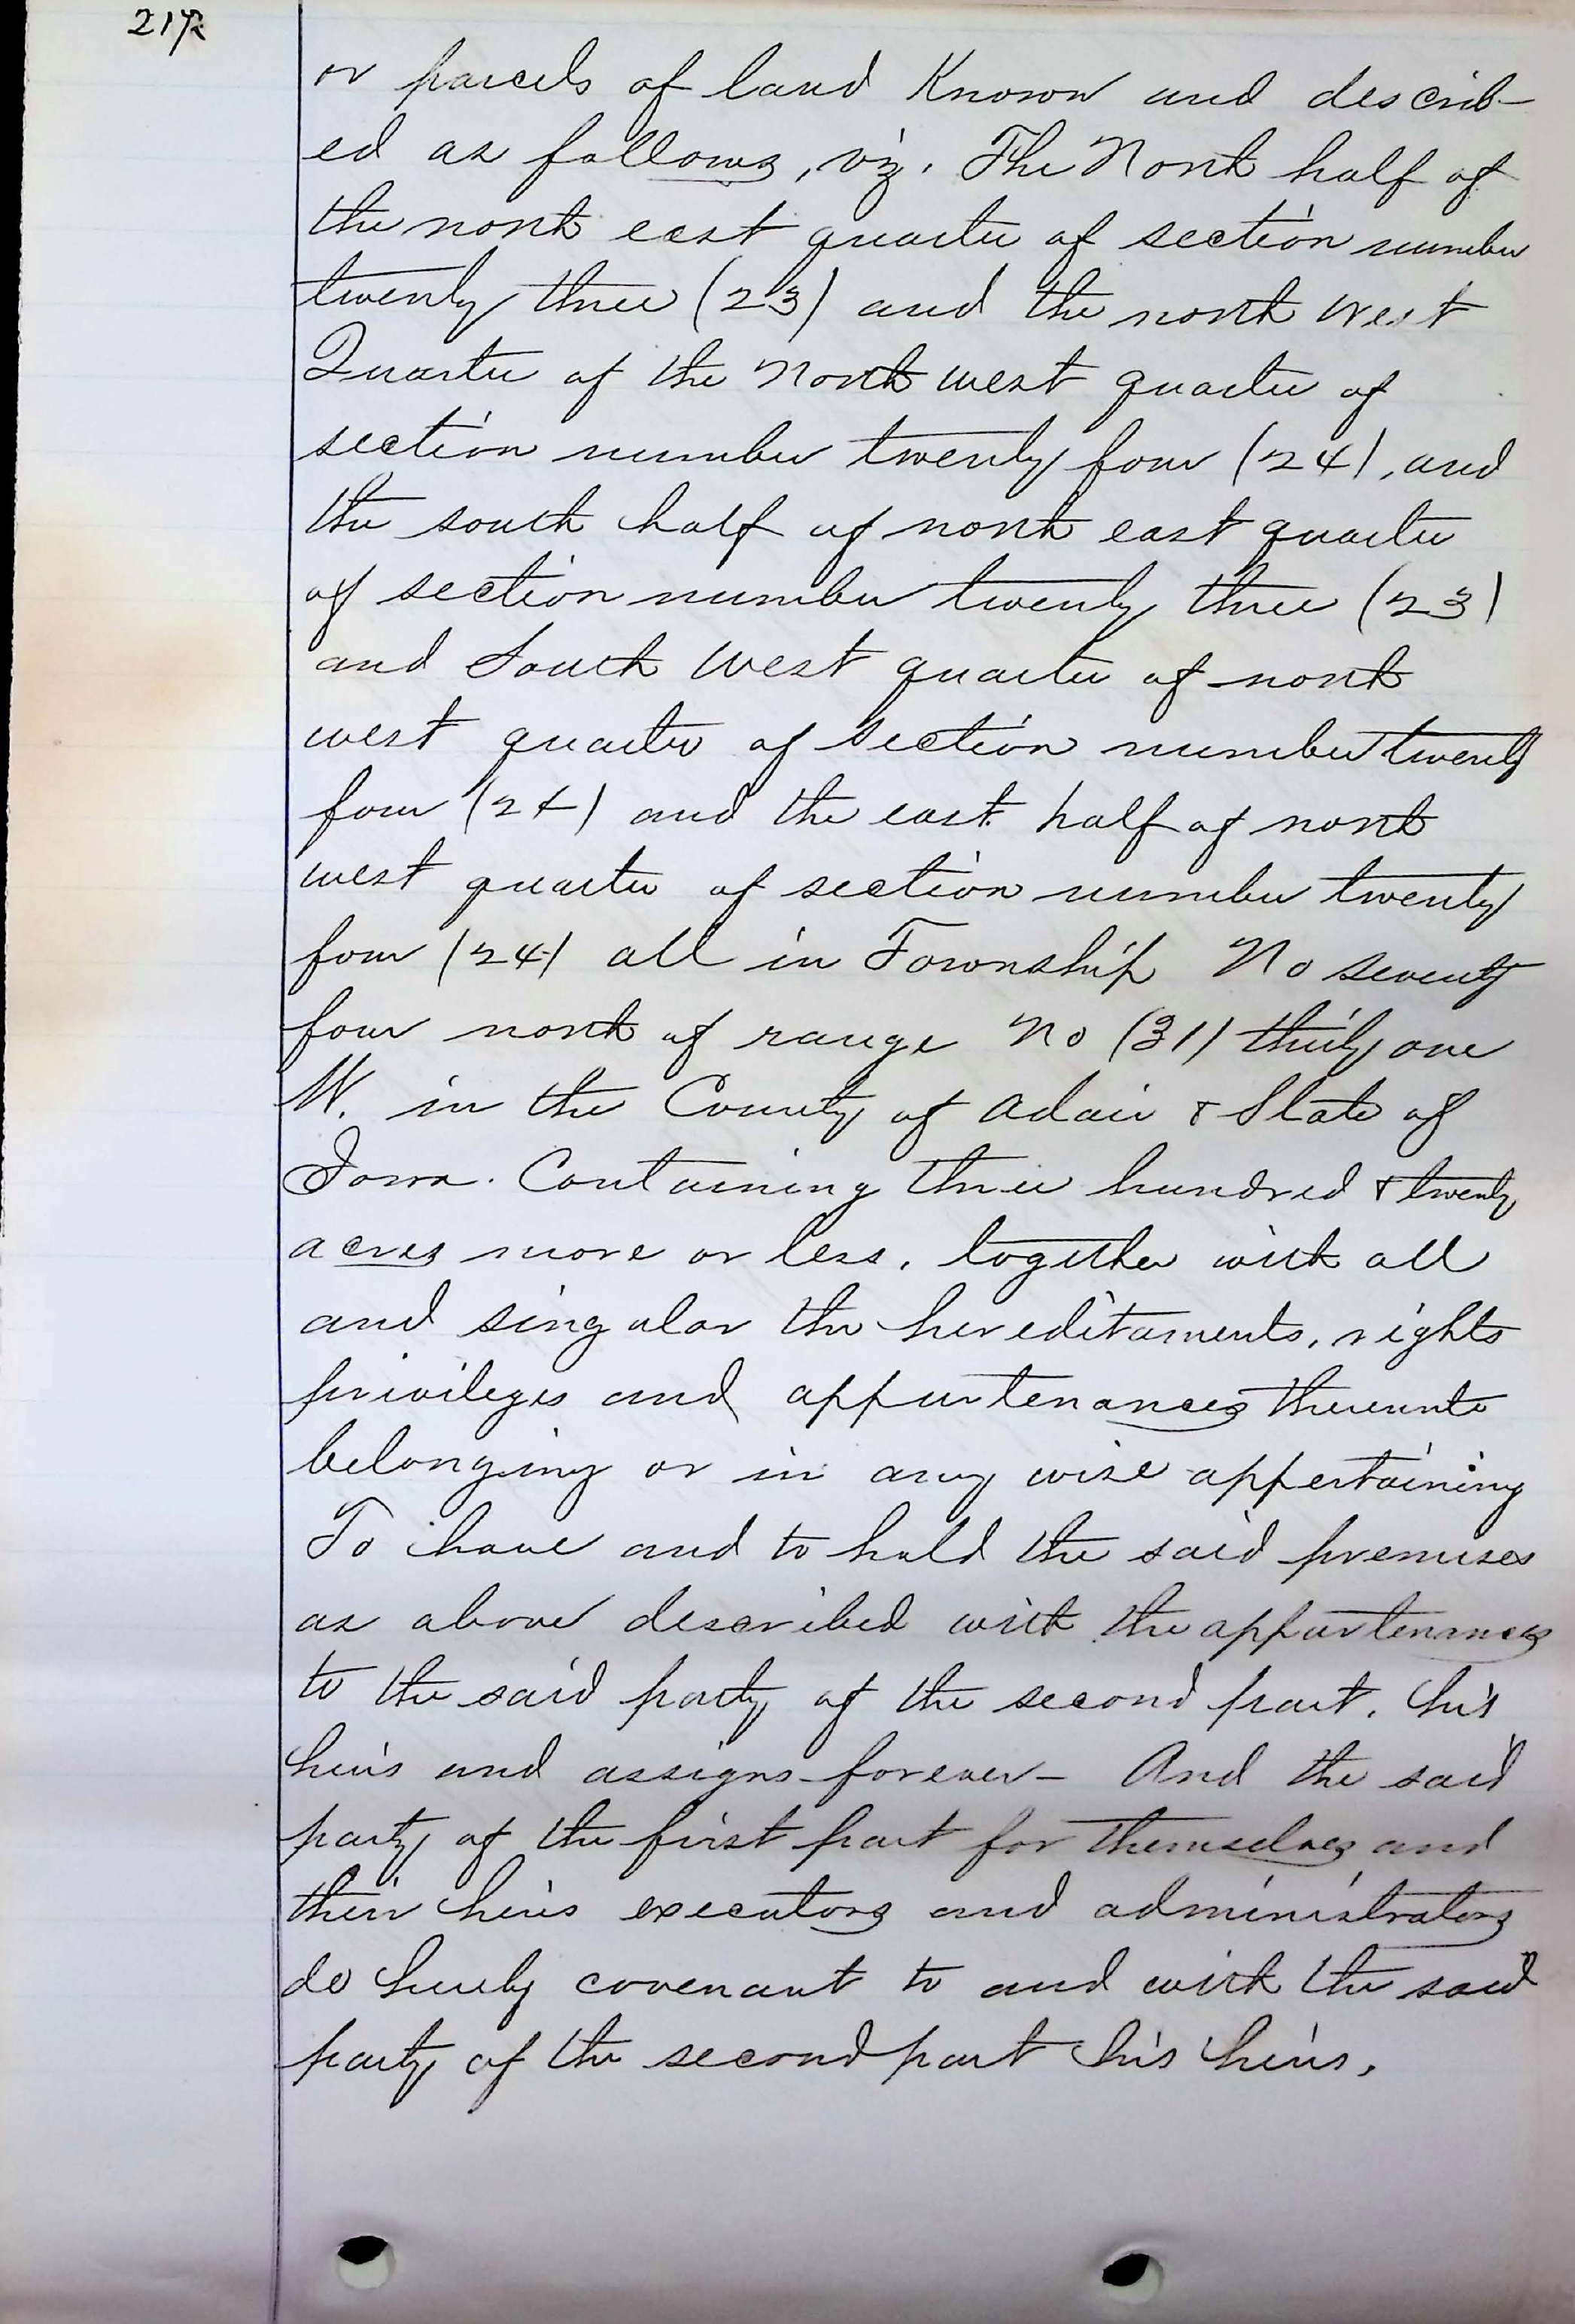 217½
or parcels of land Known and describ-
ed as follows, viz. The North half of
the north east quarter of section number
twenty three (23) and the north west
Quarter of the North west quarter of
section number twenty four (24), and
the south half of north east quarter
of section number twenty three (23)
and South West quarter of north
west quarter of section number twenty
four (24) and the east half of north
west quarter of section number twenty
four (24) all in Township No seventy
four north of range No (31) thirty one
W. in the County of Adair & State of
Iowa. Containing three hundred & twenty
acres more or less, together with all
and singular the hereditaments, rights
privileges and appurtenances thereunto
belonging or in any wise appertaining
To have and to hold the said premises
as above described with the appurtenances
to the said party of the second part, his
heirs and assigns forever - And the said
party of the first part for themselves and
their heirs executors and administrators
do hereby covenant to and with the said
party of the second part his heirs,